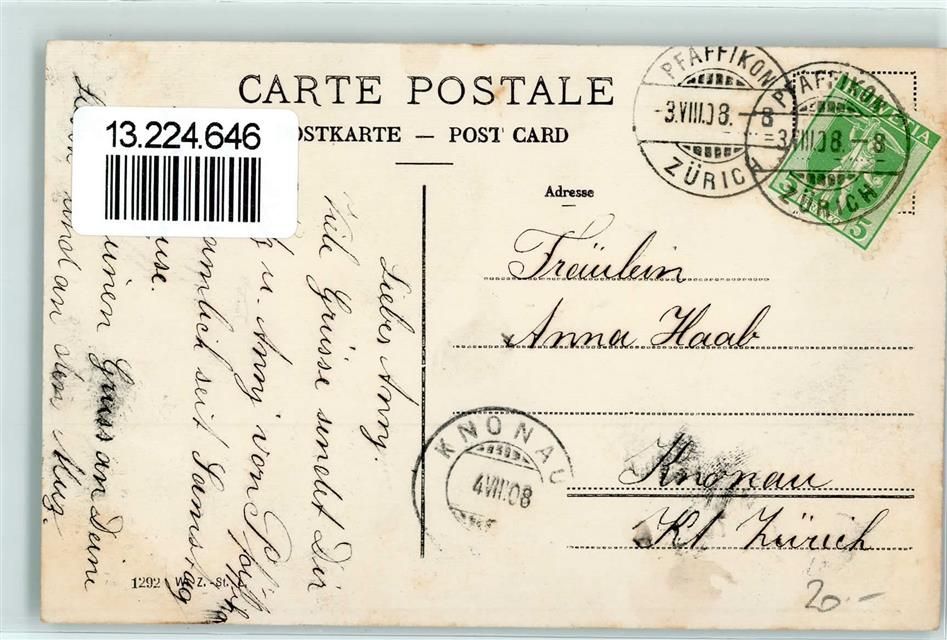 CARTE POSTALE
POSTKARTE — POST CARD
13.224.646
PFÄFFIKON
-3.VIII.08.-8
ZÜRICH
PFÄFFIKON
-3.VIII.08.-8
ZÜRICH
HELVETIA
5 5
Adresse
Fräulein
Anna Haab
Knonau
Kt. Zürich
KNONAU
4.VIII.08
Liebes Anny.
Viele Grüsse sendet Dir
u. Anny von
seit Samstag
Gruss an Deine
und an den
1292 W. Z. -St.
20.-